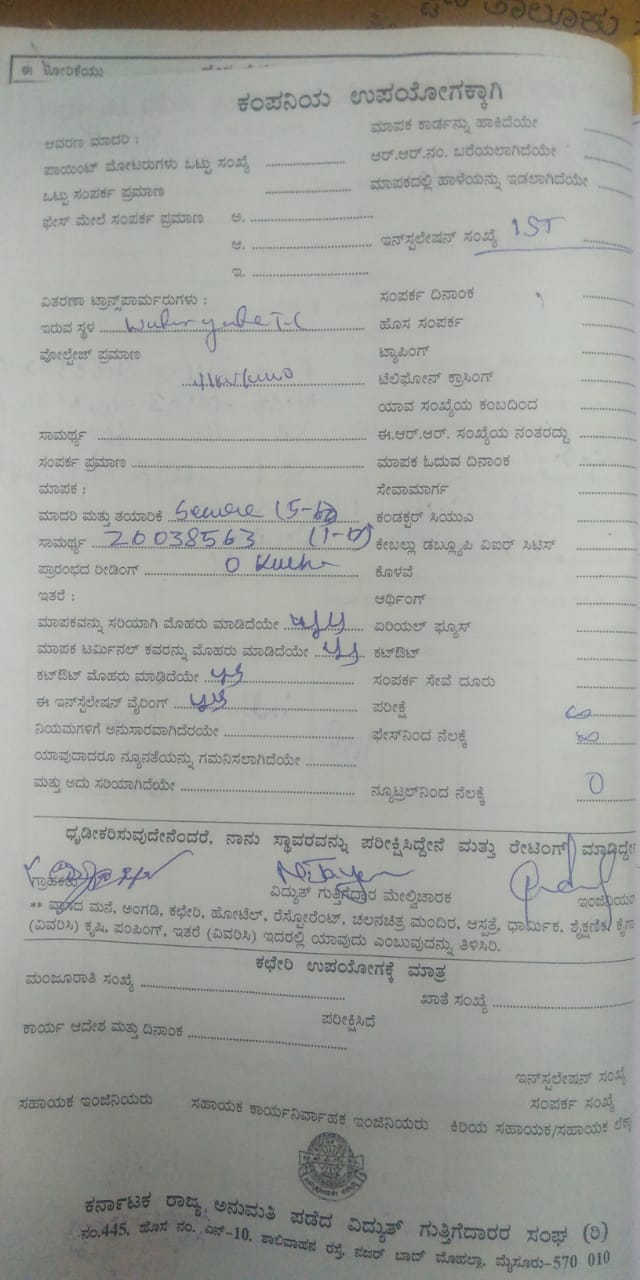 ತಾಲೂಕು
ಈ ಕೋರಿಕೆಯು
ಕಂಪನಿಯ ಉಪಯೋಗಕ್ಕಾಗಿ
ಆವರಣ ಮಾದರಿ :
ಮಾಪಕ ಕಾರ್ಡನ್ನು ಹಾಕಿದೆಯೇ
ಪಾಯಿಂಟ್ ಮೋಟರುಗಳು ಒಟ್ಟು ಸಂಖ್ಯೆ
ಆರ್.ಆರ್.ನಂ. ಬರೆಯಲಾಗಿದೆಯೇ
ಒಟ್ಟು ಸಂಪರ್ಕ ಪ್ರಮಾಣ
ಮಾಪಕದಲ್ಲಿ ಹಾಳೆಯನ್ನು ಇಡಲಾಗಿದೆಯೇ
ಫೇಸ್ ಮೇಲೆ ಸಂಪರ್ಕ ಪ್ರಮಾಣ ಅ.
ಆ.
ಇನ್‌ಸ್ಟಲೇಷನ್ ಸಂಖ್ಯೆ 1ST
ಇ.
ವಿತರಣಾ ಟ್ರಾನ್ಸ್‌ಫಾರ್ಮರುಗಳು :
ಸಂಪರ್ಕ ದಿನಾಂಕ
ಇರುವ ಸ್ಥಳ
ಹೊಸ ಸಂಪರ್ಕ
ವೋಲ್ಟೇಜ್ ಪ್ರಮಾಣ
ಟ್ಯಾಪಿಂಗ್
ಟೆಲಿಫೋನ್ ಕ್ರಾಸಿಂಗ್
ಯಾವ ಸಂಖ್ಯೆಯ ಕಂಬದಿಂದ
ಸಾಮರ್ಥ್ಯ
ಈ.ಆರ್.ಆರ್. ಸಂಖ್ಯೆಯ ನಂತರದ್ದು
ಸಂಪರ್ಕ ಪ್ರಮಾಣ
ಮಾಪಕ ಓದುವ ದಿನಾಂಕ
ಮಾಪಕ :
ಸೇವಾಮಾರ್ಗ
ಮಾದರಿ ಮತ್ತು ತಯಾರಿಕೆ Secure
ಕಂಡಕ್ಟರ್ ಸಿಯುಎ
ಸಾಮರ್ಥ್ಯ 20038563
ಕೇಬಲ್ಲು ಡಬ್ಲ್ಯೂಪಿ ವಿಐರ್ ಸಿಟಿಸ್
ಪ್ರಾರಂಭದ ರೀಡಿಂಗ್ 0
ಕೊಳವೆ
ಇತರೆ :
ಆರ್ಥಿಂಗ್
ಮಾಪಕವನ್ನು ಸರಿಯಾಗಿ ಮೊಹರು ಮಾಡಿದೆಯೇ
ಏರಿಯಲ್ ಫ್ಯೂಸ್
ಮಾಪಕ ಟರ್ಮಿನಲ್ ಕವರನ್ನು ಮೊಹರು ಮಾಡಿದೆಯೇ
ಕಟ್‌ಔಟ್
ಕಟ್‌ಔಟ್ ಮೊಹರು ಮಾಡಿದೆಯೇ
ಸಂಪರ್ಕ ಸೇವೆ ದೂರು
ಈ ಇನ್‌ಸ್ಟಲೇಷನ್ ವೈರಿಂಗ್
ಪರೀಕ್ಷೆ
ನಿಯಮಗಳಿಗೆ ಅನುಸಾರವಾಗಿದೆರಯೇ
ಫೇಸ್‌ನಿಂದ ನೆಲಕ್ಕೆ
ಯಾವುದಾದರೂ ನ್ಯೂನತೆಯನ್ನು ಗಮನಿಸಲಾಗಿದೆಯೇ
ಮತ್ತು ಅದು ಸರಿಯಾಗಿದೆಯೇ
ನ್ಯೂಟ್ರಲ್‌ನಿಂದ ನೆಲಕ್ಕೆ 0
ಧೃಡೀಕರಿಸುವುದೇನೆಂದರೆ, ನಾನು ಸ್ಥಾವರವನ್ನು ಪರೀಕ್ಷಿಸಿದ್ದೇನೆ ಮತ್ತು ರೇಟಿಂಗ್ ಮಾಡಿದ್ದೇ
ಗ್ರಾಹಕರು
ವಿದ್ಯುತ್ ಗುತ್ತಿಗೆದಾರ ಮೇಲ್ವಿಚಾರಕ
ಇಂಜಿನಿಯರ
** ವಾಸದ ಮನೆ, ಅಂಗಡಿ, ಕಛೇರಿ, ಹೋಟೆಲ್, ರೆಸ್ಟೋರೆಂಟ್, ಚಲನಚಿತ್ರ ಮಂದಿರ, ಆಸ್ಪತ್ರೆ, ಧಾರ್ಮಿಕ, ಶೈಕ್ಷಣಿಕ, ಕೈಗಾ
(ವಿವರಿಸಿ) ಕೃಷಿ, ಪಂಪಿಂಗ್, ಇತರೆ (ವಿವರಿಸಿ) ಇದರಲ್ಲಿ ಯಾವುದು ಎಂಬುವುದನ್ನು ತಿಳಿಸಿರಿ.
ಕಛೇರಿ ಉಪಯೋಗಕ್ಕೆ ಮಾತ್ರ
ಮಂಜೂರಾತಿ ಸಂಖ್ಯೆ
ಖಾತೆ ಸಂಖ್ಯೆ
ಪರೀಕ್ಷಿಸಿದೆ
ಕಾರ್ಯ ಆದೇಶ ಮತ್ತು ದಿನಾಂಕ
ಇನ್‌ಸ್ಟಲೇಷನ್ ಸಂಖ್ಯೆ
ಸಂಪರ್ಕ ಸಂಖ್ಯೆ
ಸಹಾಯಕ ಇಂಜಿನಿಯರು
ಸಹಾಯಕ ಕಾರ್ಯನಿರ್ವಾಹಕ ಇಂಜಿನಿಯರು
ಕಿರಿಯ ಸಹಾಯಕ/ಸಹಾಯಕ
ಕರ್ನಾಟಕ ರಾಜ್ಯ ಅನುಮತಿ ಪಡೆದ ವಿದ್ಯುತ್ ಗುತ್ತಿಗೆದಾರರ ಸಂಘ (ರಿ)
ನಂ.445, ಹೊಸ ನಂ. ಎನ್-10, ಶಾಲಿವಾಹನ ರಸ್ತೆ, ನಜರ್ ಬಾದ್ ಮೊಹಲ್ಲಾ, ಮೈಸೂರು-570 010